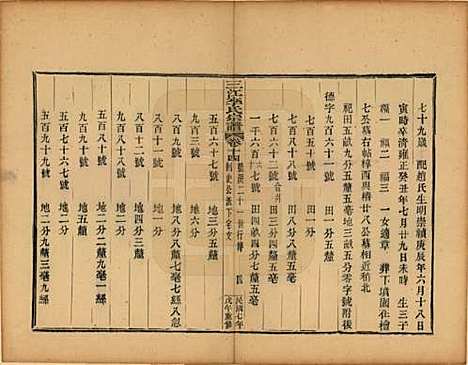 七十九歲 配趙氏生明崇禎庚辰年六月十八日
寅時卒清雍正癸丑年七月廿九日未時 生三子
福一 福二 福三 一女適章 葬下塡園企檜
七公墓右帖樟西與椿廿八公墓相近稍北
祀田五畝九分五釐五毫地三畝五分零字號附後
德字九百六十號 田一分
一百五十號 田一分
九百六十二號 田三分五釐五毫
一千六百十號 田四畝四分七釐五毫
三江李氏宗譜
卷十四
派下宅支
四
民國七年
戊午重修
五百六十七號 地三分二釐五毫
九百三號 地六分
九百八十八號 地五分八釐七毫七經八忽
八百五十七號 地四分三釐
八百五十八號 地五釐
五百九十號 地二分二釐九毫一經
五百七十六號 地二分七釐
五百九十九號 地二分九釐三毫九經